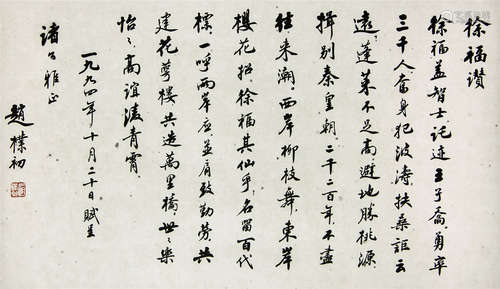 徐福讚
徐福盖智士託迹王子喬勇率
三千人奮身犯波濤扶桑詎云
遠蓬萊不足高避地勝桃源
揖別秦皇朝二千二百年不盡
往來潮西岸柳枝舞東岸
櫻花招徐福其仙乎名留百代
標一呼兩岸應並肩致勤勞共
建花萼樓共造萬里橋世々樂
怡々高誼淩青霄
一九九四年十月二十日賦呈
諸公雅正
趙樸初